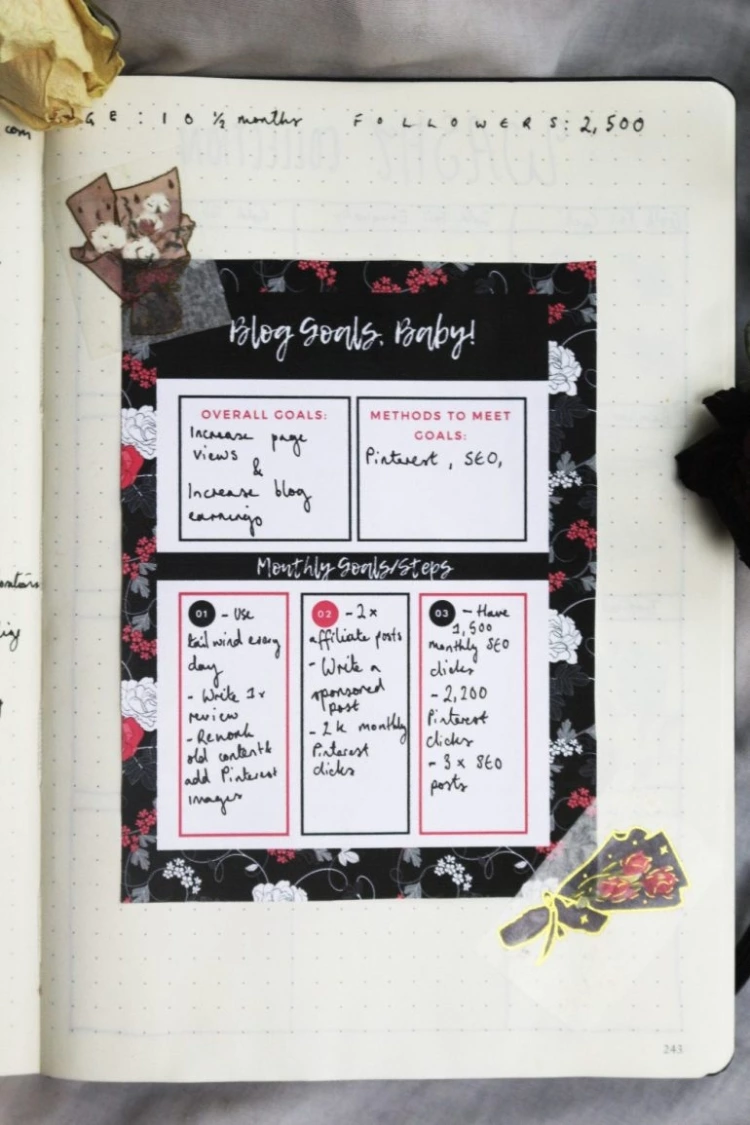 GE : 10 ½ months FOLLOWERS: 2,500
com
WASHI COLLECTION
Blog Goals, Baby!
OVERALL GOALS:
Increase page
views
&
Increase blog
earnings
METHODS TO MEET
GOALS:
Pinterest, SEO,
Monthly Goals/Steps
01 - Use
tailwind every
day
- Write 1x
review
- Rework
old content &
add Pinterest
images
02 - 2x
affiliate posts
- Write a
sponsored
post
- 2k monthly
Pinterest
clicks
03 - Have
1,500
monthly SEO
clicks
- 2,200
Pinterest
clicks
- 3 x SEO
posts
243